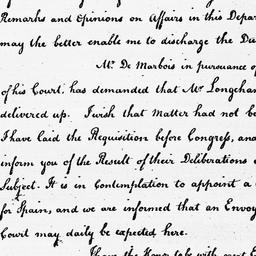 Remarks and Opinions on Affairs in this Depar
may the better enable me to discharge the Du
Mr. De Marbois in pursuance of
of his Court, has demanded that Mr. Longcham
delivered up. I wish that Matter had not be
I have laid the Requisition before Congress, and
inform you of the Result of their Deliberations o
Subject. It is in Contemplation to appoint a
for Spain, and we are informed that an Envoy
Court may daily be expected here.
I have the Honor to be with great E